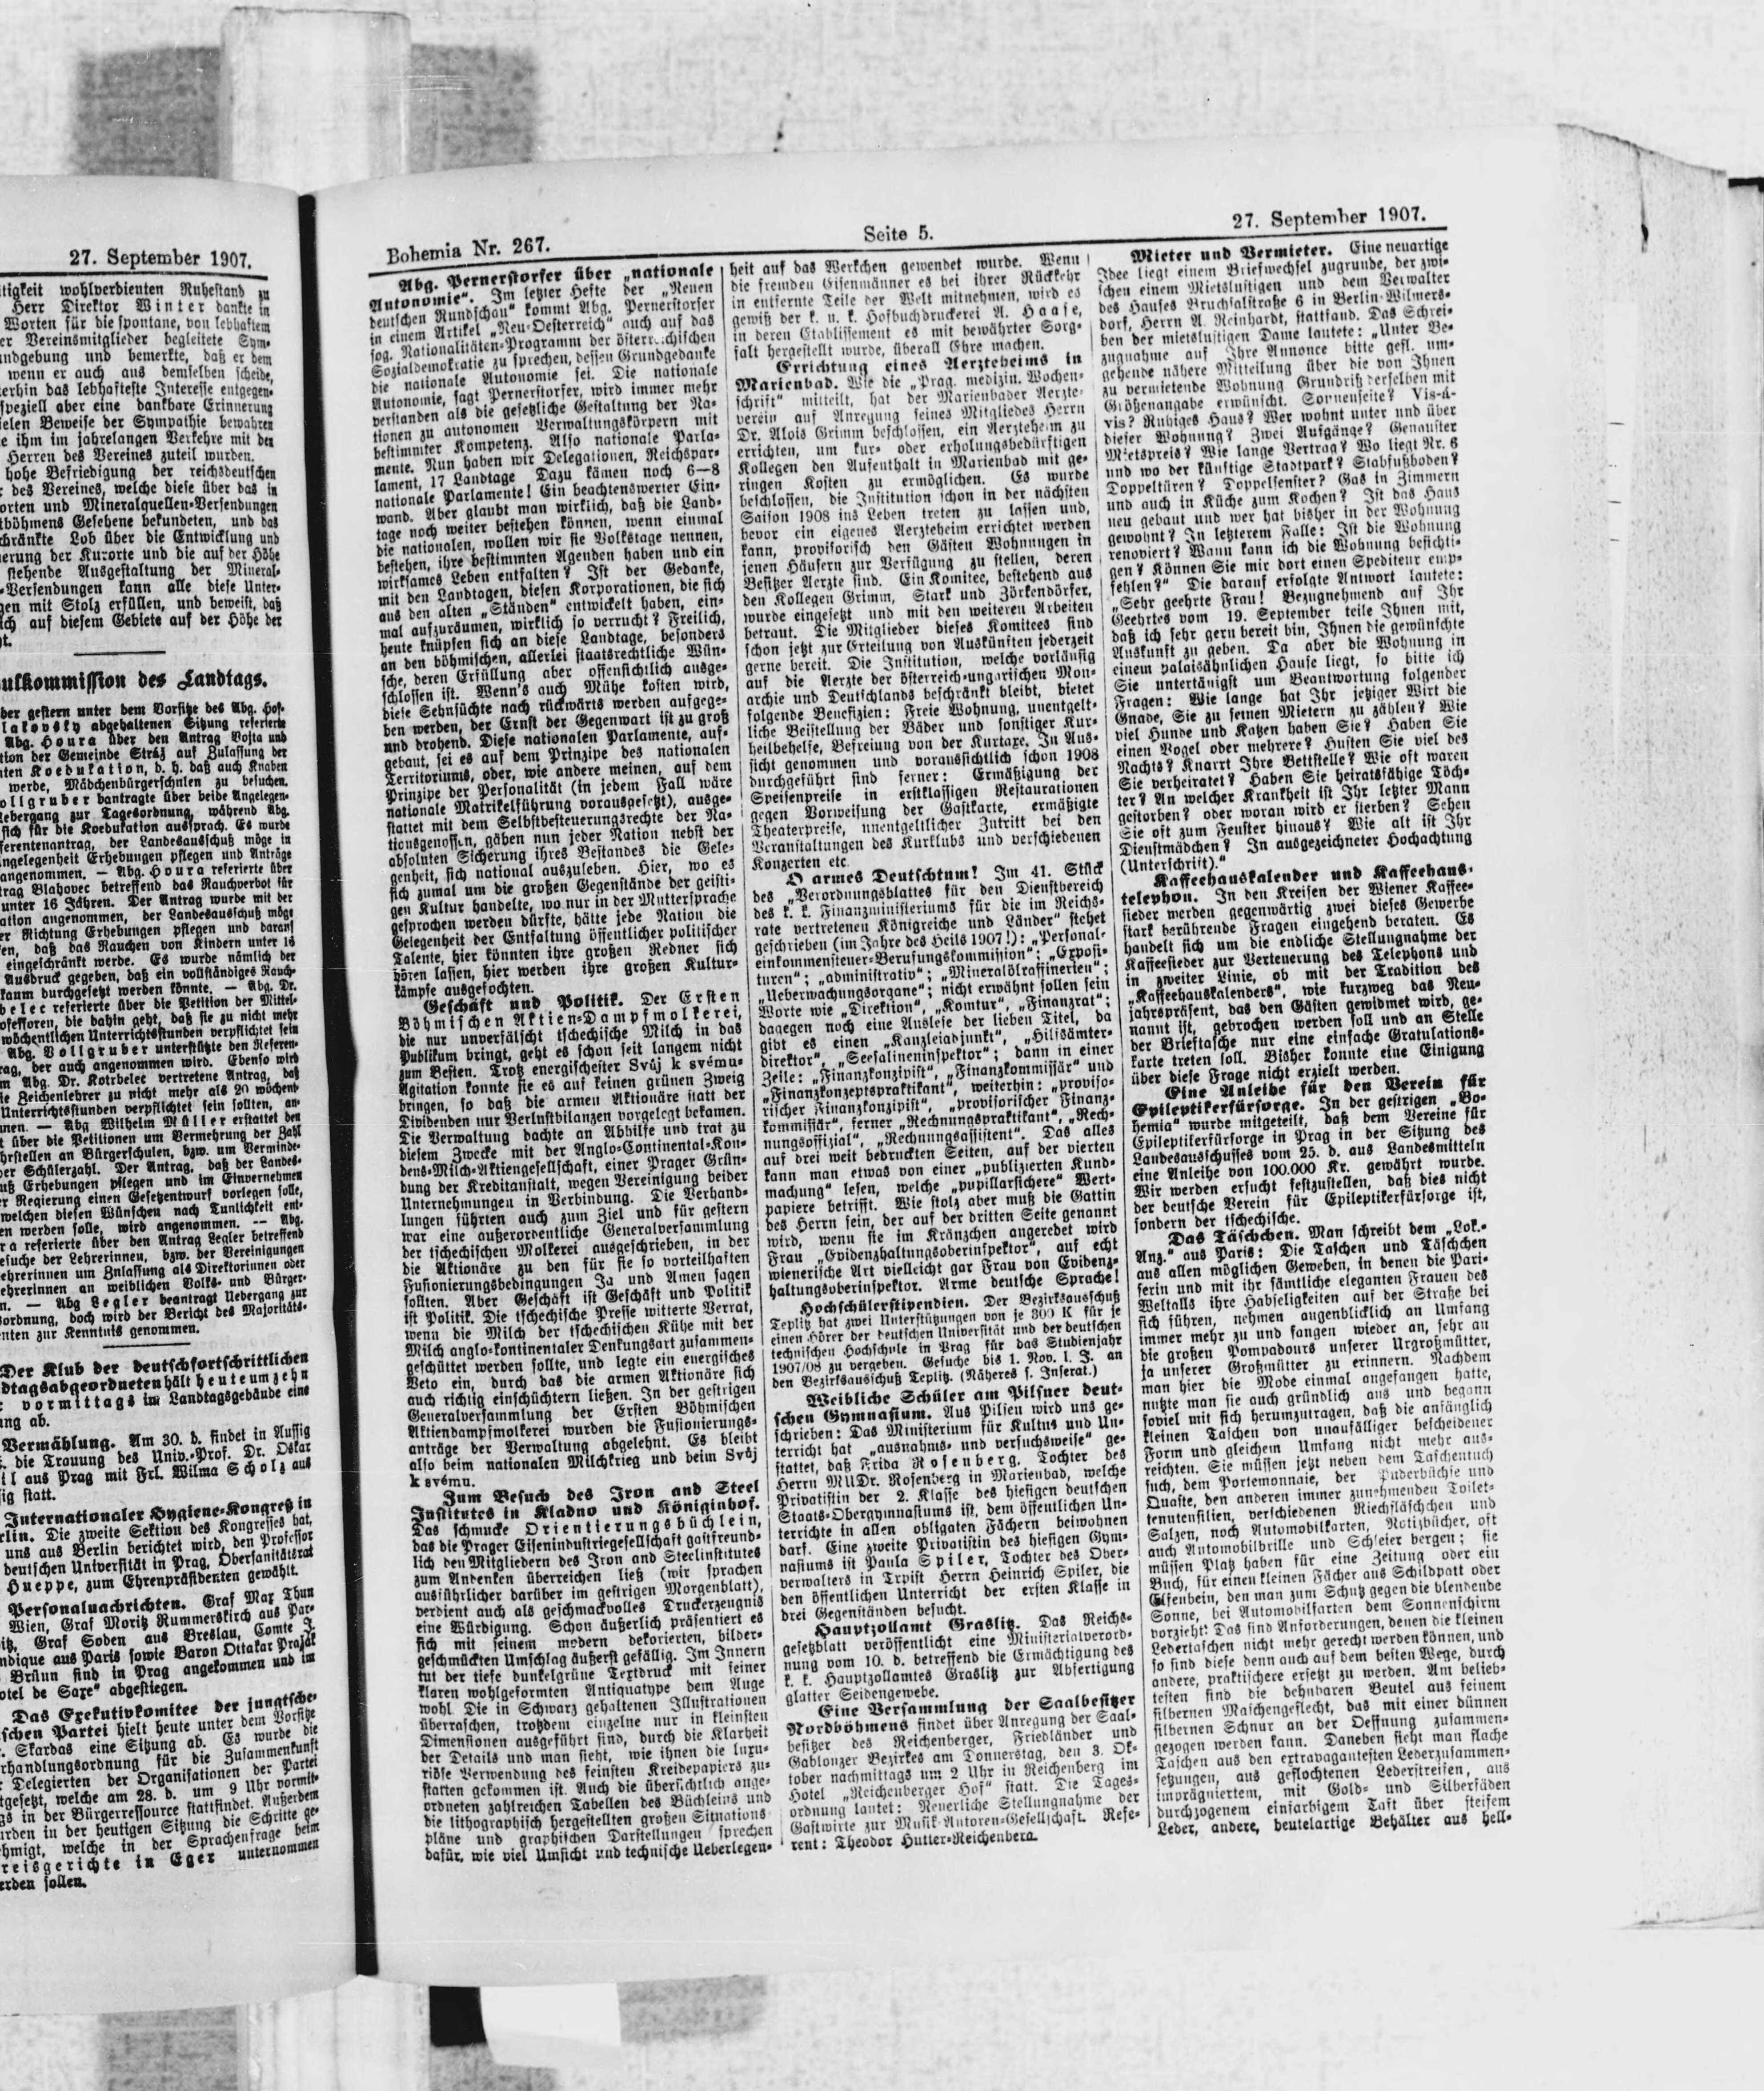 27. September 1907.
tigkeit wohlverdienten Ruhestand zu
Herr Direktor Winter dankte in
Worten für die spontane, von lebhaftem
er Vereinsmitglieder begleitete Sym-
undgebung und bemerkte, daß er dem
wenn er auch aus demselben scheide,
erhin das lebhafteste Interesse entgegen-
speziell aber eine dankbare Erinnerung
ielen Beweise der Sympathie bewahren
e ihm im jahrelangen Verkehre mit den
Herren des Vereines zuteil wurden.
hohe Befriedigung der reichsdeutschen
des Vereines, welche diese über das in
orten und Mineralquellen-Versendungen
tböhmens Gesehene bekundeten, und das
chränkte Lob über die Entwicklung und
erung der Kurorte und die auf der Höhe
stehende Ausgestaltung der Mineral-
-Versendungen kann alle diese Unter-
gen mit Stolz erfüllen, und beweist, daß
ich auf diesem Gebiete auf der Höhe der
t.
ulkommission des Landtags.
der gestern unter dem Vorsitze des Abg. Hof-
lakovsky abgehaltenen Sitzung referierte
Abg. Houra über den Antrag Vojta und
tion der Gemeinde Stráž auf Zulassung der
ten Koedukation, d. h. daß auch Knaben
werde, Mädchenbürgerschulen zu besuchen.
ollgruber bantragte über beide Angelegen-
ebergang zur Tagesordnung, während Abg.
sich für die Koedukation aussprach. Es wurde
ferentenantrag, der Landesausschuß möge in
ngelegenheit Erhebungen pflegen und Anträge
angenommen. — Abg. Houra referierte über
trag Blahovec betreffend das Rauchverbot für
unter 16 Jahren. Der Antrag wurde mit der
ation angenommen, der Landesausschuß möge
er Richtung Erhebungen pflegen und darauf
en, daß das Rauchen von Kindern unter 16
eingeschränkt werde. Es wurde nämlich der
Ausdruck gegeben, daß ein vollständiges Rauch-
kaum durchgesetzt werden könnte. — Abg. Dr.
belec referierte über die Petition der Mittel-
ofessoren, die dahin geht, daß sie zu nicht mehr
wöchentlichen Unterrichtsstunden verpflichtet sein
Abg. Vollgruber unterstützte den Referen-
rag, der auch angenommen wird. Ebenso wird
m Abg. Dr. Kotrbelec vertretene Antrag, daß
ie Zeichenlehrer zu nicht mehr als 20 wöchent-
Unterrichtsstunden verpflichtet sein sollten, an-
men. — Abg Wilhelm Müller erstattet den
t über die Petitionen um Vermehrung der Zahl
hrstellen an Bürgerschulen, bzw. um Verminde-
er Schülerzahl. Der Antrag, daß der Landes-
uß Erhebungen pflegen und im Einvernehmen
r Regierung einen Gesetzentwurf vorlegen solle,
welchen diesen Wünschen nach Tunlichkeit ent-
en werden solle, wird angenommen. — Abg.
ra referierte über den Antrag Legler betreffend
esuche der Lehrerinnen, bzw. der Vereinigungen
ehrerinnen um Zulassung als Direktorinnen oder
ehrerinnen an weiblichen Volks- und Bürger-
n. — Abg Legler beantragt Uebergang zur
ordnung, doch wird der Bericht des Majoritäts-
enten zur Kenntnis genommen.
Der Klub der deutschfortschrittlichen
dtagsabgeordneten hält heute um zehn
vormittags im Landtagsgebäude eine
ung ab.
Vermählung. Am 30. d. findet in Aussig
die Trauung des Univ.-Prof. Dr. Oskar
il aus Prag mit Frl. Wilma Scholz aus
sig statt.
Internationaler Hygiene-Kongreß in
rlin. Die zweite Sektion des Kongresses hat,
uns aus Berlin berichtet wird, den Professor
deutschen Universität in Prag, Obersanitätsrat
Hueppe, zum Ehrenpräsidenten gewählt.
Personalnachrichten. Graf Max Thun
Wien, Graf Moritz Rummerskirch aus Par-
itz, Graf Soden aus Breslau, Comte J.
ndique aus Paris sowie Baron Ottokar Pražák
Brünn sind in Prag angekommen und im
otel de Saxe" abgestiegen.
Das Exekutivkomitee der jungtsche-
schen Partei hielt heute unter dem Vorsitze
. Skardas eine Sitzung ab. Es wurde die
rhandlungsordnung für die Zusammenkunft
Delegierten der Organisationen der Partei
tgesetzt, welche am 28. d. um 9 Uhr vormit-
gs in der Bürgerressource stattfindet. Außerdem
rden in der heutigen Sitzung die Schritte ge-
hmigt, welche in der Sprachenfrage beim
reisgerichte in Eger unternommen
erden sollen.
Bohemia Nr. 267.
Seite 5.
27. September 1907.
Abg. Pernerstorfer über „nationale
Autonomie". Im letzter Hefte der „Neuen
deutschen Rundschau" kommt Abg. Pernerstorfer
in einem Artikel „Neu-Oesterreich" auch auf das
sog. Nationalitäten-Programm der österreichischen
Sozialdemokratie zu sprechen, dessen Grundgedanke
die nationale Autonomie sei. Die nationale
Autonomie, sagt Pernerstorfer, wird immer mehr
verstanden als die gesetzliche Gestaltung der Na-
tionen zu autonomen Verwaltungskörpern mit
bestimmter Kompetenz. Also nationale Parla-
mente. Nun haben wir Delegationen, Reichspar-
lament, 17 Landtage Dazu kämen noch 6—8
nationale Parlamente! Ein beachtenswerter Ein-
wand. Aber glaubt man wirklich, daß die Land-
tage noch weiter bestehen können, wenn einmal
die nationalen, wollen wir sie Volkstage nennen,
bestehen, ihre bestimmten Agenden haben und ein
wirksames Leben entfalten? Ist der Gedanke,
mit den Landtagen, diesen Korporationen, die sich
aus den alten „Ständen" entwickelt haben, ein-
mal aufzuräumen, wirklich so verrucht? Freilich,
heute knüpfen sich an diese Landtage, besonders
an den böhmischen, allerlei staatsrechtliche Wün-
sche, deren Erfüllung aber offensichtlich ausge-
schlossen ist. Wenn's auch Mühe kosten wird,
diese Sehnsüchte nach rückwärts werden aufgege-
ben werden, der Ernst der Gegenwart ist zu groß
und drohend. Diese nationalen Parlamente, auf-
gebaut, sei es auf dem Prinzipe des nationalen
Territoriums, oder, wie andere meinen, auf dem
Prinzipe der Personalität (in jedem Fall wäre
nationale Matrikelführung vorausgesetzt), ausge-
stattet mit dem Selbstbesteuerungsrechte der Na-
tionsgenossen, gäben nun jeder Nation nebst der
absoluten Sicherung ihres Bestandes die Gele-
genheit, sich national auszuleben. Hier, wo es
sich zumal um die großen Gegenstände der geisti-
gen Kultur handelte, wo nur in der Muttersprache
gesprochen werden dürfte, hätte jede Nation die
Gelegenheit der Entfaltung öffentlicher politischer
Talente, hier könnten ihre großen Redner sich
hören lassen, hier werden ihre großen Kultur-
kämpfe ausgefochten.
Geschäft und Politik. Der Ersten
Böhmischen Aktien-Dampfmolkerei,
die nur unverfälscht tschechische Milch in das
Publikum bringt, geht es schon seit langem nicht
zum Besten. Trotz energischester Svůj k svému-
Agitation konnte sie es auf keinen grünen Zweig
bringen, so daß die armen Aktionäre statt der
Dividenden nur Verlustbilanzen vorgelegt bekamen.
Die Verwaltung dachte an Abhilfe und trat zu
diesem Zwecke mit der Anglo-Continental-Kon-
dens-Milch-Aktiengesellschaft, einer Prager Grün-
dung der Kreditanstalt, wegen Vereinigung beider
Unternehmungen in Verbindung. Die Verhand-
lungen führten auch zum Ziel und für gestern
war eine außerordentliche Generalversammlung
der tschechischen Molkerei ausgeschrieben, in der
die Aktionäre zu den für sie so vorteilhaften
Fusionierungsbedingungen Ja und Amen sagen
sollten. Aber Geschäft ist Geschäft und Politik
ist Politik. Die tschechische Presse witterte Verrat,
wenn die Milch der tschechischen Kühe mit der
Milch anglo-kontinentaler Denkungsart zusammen-
geschüttet werden sollte, und legte ein energisches
Veto ein, durch das die armen Aktionäre sich
auch richtig einschüchtern ließen. In der gestrigen
Generalversammlung der Ersten Böhmischen
Aktiendampfmolkerei wurden die Fusionierungs-
anträge der Verwaltung abgelehnt. Es bleibt
also beim nationalen Milchkrieg und beim Svůj
k svému.
Zum Besuch des Iron and Steel
Institutes in Kladno und Königinhof.
Das schmucke Orientierungsbüchlein,
das die Prager Eisenindustriegesellschaft gastfreund-
lich den Mitgliedern des Iron and Steelinstitutes
zum Andenken überreichen ließ (wir sprachen
ausführlicher darüber im gestrigen Morgenblatt),
verdient auch als geschmackvolles Druckerzeugnis
eine Würdigung. Schon äußerlich präsentiert es
sich mit seinem modern dekorierten, bilder-
geschmückten Umschlag äußerst gefällig. Im Innern
tut der tiefe dunkelgrüne Textdruck mit seiner
klaren wohlgeformten Antiquatype dem Auge
wohl. Die in Schwarz gehaltenen Illustrationen
überraschen, trotzdem einzelne nur in kleinsten
Dimensionen ausgeführt sind, durch die Klarheit
der Details und man sieht, wie ihnen die luxu-
riöse Verwendung des feinsten Kreidepapiers zu-
statten gekommen ist. Auch die übersichtlich ange-
ordneten zahlreichen Tabellen des Büchleins und
die lithographisch hergestellten großen Situations-
pläne und graphischen Darstellungen sprechen
dafür, wie viel Umsicht und technische Ueberlegen-
heit auf das Werkchen gewendet wurde. Wenn
die fremden Eisenmänner es bei ihrer Rückkehr
in entfernte Teile der Welt mitnehmen, wird es
gewiß der k. u. k. Hofbuchdruckerei A. Haase,
in deren Etablissement es mit bewährter Sorg-
falt hergestellt wurde, überall Ehre machen.
Errichtung eines Aerzteheims in
Marienbad. Wie die „Prag. medizin. Wochen-
schrift" mitteilt, hat der Marienbader Aerzte-
verein auf Anregung seines Mitgliedes Herrn
Dr. Alois Grimm beschlossen, ein Aerzteheim zu
errichten, um kur- oder erholungsbedürftigen
Kollegen den Aufenthalt in Marienbad mit ge-
ringen Kosten zu ermöglichen. Es wurde
beschlossen, die Institution schon in der nächsten
Saison 1908 ins Leben treten zu lassen und,
bevor ein eigenes Aerzteheim errichtet werden
kann, provisorisch den Gästen Wohnungen in
jenen Häusern zur Verfügung zu stellen, deren
Besitzer Aerzte sind. Ein Komitee, bestehend aus
den Kollegen Grimm, Stark und Zörkendörfer,
wurde eingesetzt und mit den weiteren Arbeiten
betraut. Die Mitglieder dieses Komitees sind
schon jetzt zur Erteilung von Auskünften jederzeit
gerne bereit. Die Institution, welche vorläufig
auf die Aerzte der österreich-ungarischen Mon-
archie und Deutschlands beschränkt bleibt, bietet
folgende Benefizien: Freie Wohnung, unentgelt-
liche Beistellung der Bäder und sonstiger Kur-
heilbehelfe, Befreiung von der Kurtaxe. In Aus-
sicht genommen und voraussichtlich schon 1908
durchgeführt sind ferner: Ermäßigung der
Speisenpreise in erstklassigen Restaurationen
gegen Vorweisung der Gastkarte, ermäßigte
Theaterpreise, unentgeltlicher Zutritt bei den
Veranstaltungen des Kurklubs und verschiedenen
Konzerten etc.
O armes Deutschtum! Im 41. Stück
des „Verordnungsblattes für den Dienstbereich
des k. k. Finanzministeriums für die im Reichs-
rate vertretenen Königreiche und Länder" stehet
geschrieben (im Jahre des Heils 1907!): „Personal-
einkommensteuer-Berufungskommission"; „Exposi-
turen"; „administrativ"; „Mineralölraffinerien";
„Ueberwachungsorgane"; nicht erwähnt sollen sein
Worte wie „Direktion", „Komtur", „Finanzrat";
dagegen noch eine Auslese der lieben Titel, da
gibt es einen „Kanzleiadjunkt", „Hilfsämter-
direktor", „Seesalineninspektor"; dann in einer
Zeile: „Finanzkonzipist", „Finanzkommissär" und
„Finanzkonzeptspraktikant", weiterhin: „proviso-
rischer Finanzkonzipist", „provisorischer Finanz-
kommissär", ferner „Rechnungspraktikant", „Rech-
nungsoffizial", „Rechnungsassistent". Das alles
auf drei weit bedruckten Seiten, auf der vierten
kann man etwas von einer „publizierten Kund-
machung" lesen, welche „pupillarsichere" Wert-
papiere betrifft. Wie stolz aber muß die Gattin
des Herrn sein, der auf der dritten Seite genannt
wird, wenn sie im Kränzchen angeredet wird
Frau „Evidenzhaltungsoberinspektor", auf echt
wienerische Art vielleicht gar Frau von Evidenz-
haltungsoberinspektor. Arme deutsche Sprache!
Hochschülerstipendien. Der Bezirksausschuß
Teplitz hat zwei Unterstützungen von je 300 K für je
einen Hörer der deutschen Universität und der deutschen
technischen Hochschule in Prag für das Studienjahr
1907/08 zu vergeben. Gesuche bis 1. Nov. l. J. an
den Bezirksausschuß Teplitz. (Näheres s. Inserat.)
Weibliche Schüler am Pilsner deut-
schen Gymnasium. Aus Pilsen wird uns ge-
schrieben: Das Ministerium für Kultus und Un-
terricht hat „ausnahms- und versuchsweise" ge-
stattet, daß Frida Rosenberg, Tochter des
Herrn MUDr. Rosenberg in Marienbad, welche
Privatistin der 2. Klasse des hiesigen deutschen
Staats-Obergymnasiums ist, dem öffentlichen Un-
terrichte in allen obligaten Fächern beiwohnen
darf. Eine zweite Privatistin des hiesigen Gym-
nasiums ist Paula Spiler, Tochter des Ober-
verwalters in Trpist Herrn Heinrich Spiler, die
den öffentlichen Unterricht der ersten Klasse in
drei Gegenständen besucht.
Hauptzollamt Graslitz. Das Reichs-
gesetzblatt veröffentlicht eine Ministerialverord-
nung vom 10. d. betreffend die Ermächtigung des
k. k. Hauptzollamtes Graslitz zur Abfertigung
glatter Seidengewebe.
Eine Versammlung der Saalbesitzer
Nordböhmens findet über Anregung der Saal-
besitzer des Reichenberger, Friedländer und
Gablonzer Bezirkes am Donnerstag, den 3. Ok-
tober nachmittags um 2 Uhr in Reichenberg im
Hotel „Reichenberger Hof" statt. Die Tages-
ordnung lautet: Neuerliche Stellungnahme der
Gastwirte zur Musik-Autoren-Gesellschaft. Refe-
rent: Theodor Hutler-Reichenberg.
Mieter und Vermieter. Eine neuartige
Idee liegt einem Briefwechsel zugrunde, der zwi-
schen einem Mietslustigen und dem Verwalter
des Hauses Bruchsalstraße 6 in Berlin-Wilmers-
dorf, Herrn A. Reinhardt, stattfand. Das Schrei-
ben der mietslustigen Dame lautete: „Unter Be-
zugnahme auf Ihre Annonce bitte gefl. um-
gehende nähere Mitteilung über die von Ihnen
zu vermietende Wohnung Grundriß derselben mit
Größenangabe erwünscht. Sonnenseite? Vis-à-
vis? Ruhiges Haus? Wer wohnt unter und über
dieser Wohnung? Zwei Aufgänge? Genauster
Mietspreis? Wie lange Vertrag? Wo liegt Nr. 6
und wo der künftige Stadtpark? Stabfußboden?
Doppeltüren? Doppelfenster? Gas in Zimmern
und auch in Küche zum Kochen? Ist das Haus
neu gebaut und wer hat bisher in der Wohnung
gewohnt? In letzterem Falle: Ist die Wohnung
renoviert? Wann kann ich die Wohnung besichti-
gen? Können Sie mir dort einen Spediteur emp-
fehlen?" Die darauf erfolgte Antwort lautete:
„Sehr geehrte Frau! Bezugnehmend auf Ihr
Geehrtes vom 19. September teile Ihnen mit,
daß ich sehr gern bereit bin, Ihnen die gewünschte
Auskunft zu geben. Da aber die Wohnung in
einem palaisähnlichen Hause liegt, so bitte ich
Sie untertänigst um Beantwortung folgender
Fragen: Wie lange hat Ihr jetziger Wirt die
Gnade, Sie zu seinen Mietern zu zählen? Wie
viel Hunde und Katzen haben Sie? Haben Sie
einen Vogel oder mehrere? Husten Sie viel des
Nachts? Knarrt Ihre Bettstelle? Wie oft waren
Sie verheiratet? Haben Sie heiratsfähige Töch-
ter? An welcher Krankheit ist Ihr letzter Mann
gestorben? oder woran wird er sterben? Sehen
Sie oft zum Fenster hinaus? Wie alt ist Ihr
Dienstmädchen? In ausgezeichneter Hochachtung
(Unterschrift)."
Kaffeehauskalender und Kaffeehaus-
telephon. In den Kreisen der Wiener Kaffee-
sieder werden gegenwärtig zwei dieses Gewerbe
stark berührende Fragen eingehend beraten. Es
handelt sich um die endliche Stellungnahme der
Kaffeesieder zur Verteuerung des Telephons und
in zweiter Linie, ob mit der Tradition des
„Kaffeehauskalenders", wie kurzweg das Neu-
jahrspräsent, das den Gästen gewidmet wird, ge-
nannt ist, gebrochen werden soll und an Stelle
der Brieftasche nur eine einfache Gratulations-
karte treten soll. Bisher konnte eine Einigung
über diese Frage nicht erzielt werden.
Eine Anleihe für den Verein für
Epileptikerfürsorge. In der gestrigen „Bo-
hemia" wurde mitgeteilt, daß dem Vereine für
Epileptilerfürsorge in Prag in der Sitzung des
Landesausschusses vom 25. d. aus Landesmitteln
eine Anleihe von 100.000 Kr. gewährt wurde.
Wir werden ersucht festzustellen, daß dies nicht
der deutsche Verein für Epileptikerfürsorge ist,
sondern der tschechische.
Das Täschchen. Man schreibt dem „Lok.-
Anz." aus Paris: Die Taschen und Täschchen
aus allen möglichen Geweben, in denen die Pari-
serin und mit ihr sämtliche eleganten Frauen des
Weltalls ihre Habseligkeiten auf der Straße bei
sich führen, nehmen augenblicklich an Umfang
immer mehr zu und fangen wieder an, sehr an
die großen Pompadours unserer Urgroßmütter,
ja unserer Großmütter zu erinnern. Nachdem
man hier die Mode einmal angefangen hatte,
nutzte man sie auch gründlich aus und begann
soviel mit sich herumzutragen, daß die anfänglich
kleinen Taschen von unauffälliger bescheidener
Form und gleichem Umfang nicht mehr aus-
reichten. Sie müssen jetzt neben dem Taschentuch
such, dem Portemonnaie, der Puderbüchse und
Quaste, den anderen immer zunehmenden Toilet-
tenutensilien, verschiedenen Riechfläschchen und
Salzen, noch Automobilkarten, Notizbücher, oft
auch Automobilbrille und Schleier bergen; sie
müssen Platz haben für eine Zeitung oder ein
Buch, für einen kleinen Fächer aus Schildpatt oder
Elfenbein, den man zum Schutz gegen die blendende
Sonne, bei Automobilfarten dem Sonnenschirm
vorzieht! Das sind Anforderungen, denen die kleinen
Ledertaschen nicht mehr gerecht werden können, und
so sind diese denn auch auf dem besten Wege, durch
andere, praktischere ersetzt zu werden. Am belieb-
testen sind die dehnbaren Beutel aus feinem
silbernen Maschengeflecht, das mit einer dünnen
silbernen Schnur an der Oeffnung zusammen-
gezogen werden kann. Daneben sieht man flache
Taschen aus den extravagantesten Lederzusammen-
setzungen, aus geflochtenen Lederstreifen, aus
imprägniertem, mit Gold- und Silberfäden
durchzogenem einfarbigem Taft über steifem
Leder, andere, beutelartige Behälter aus hell-